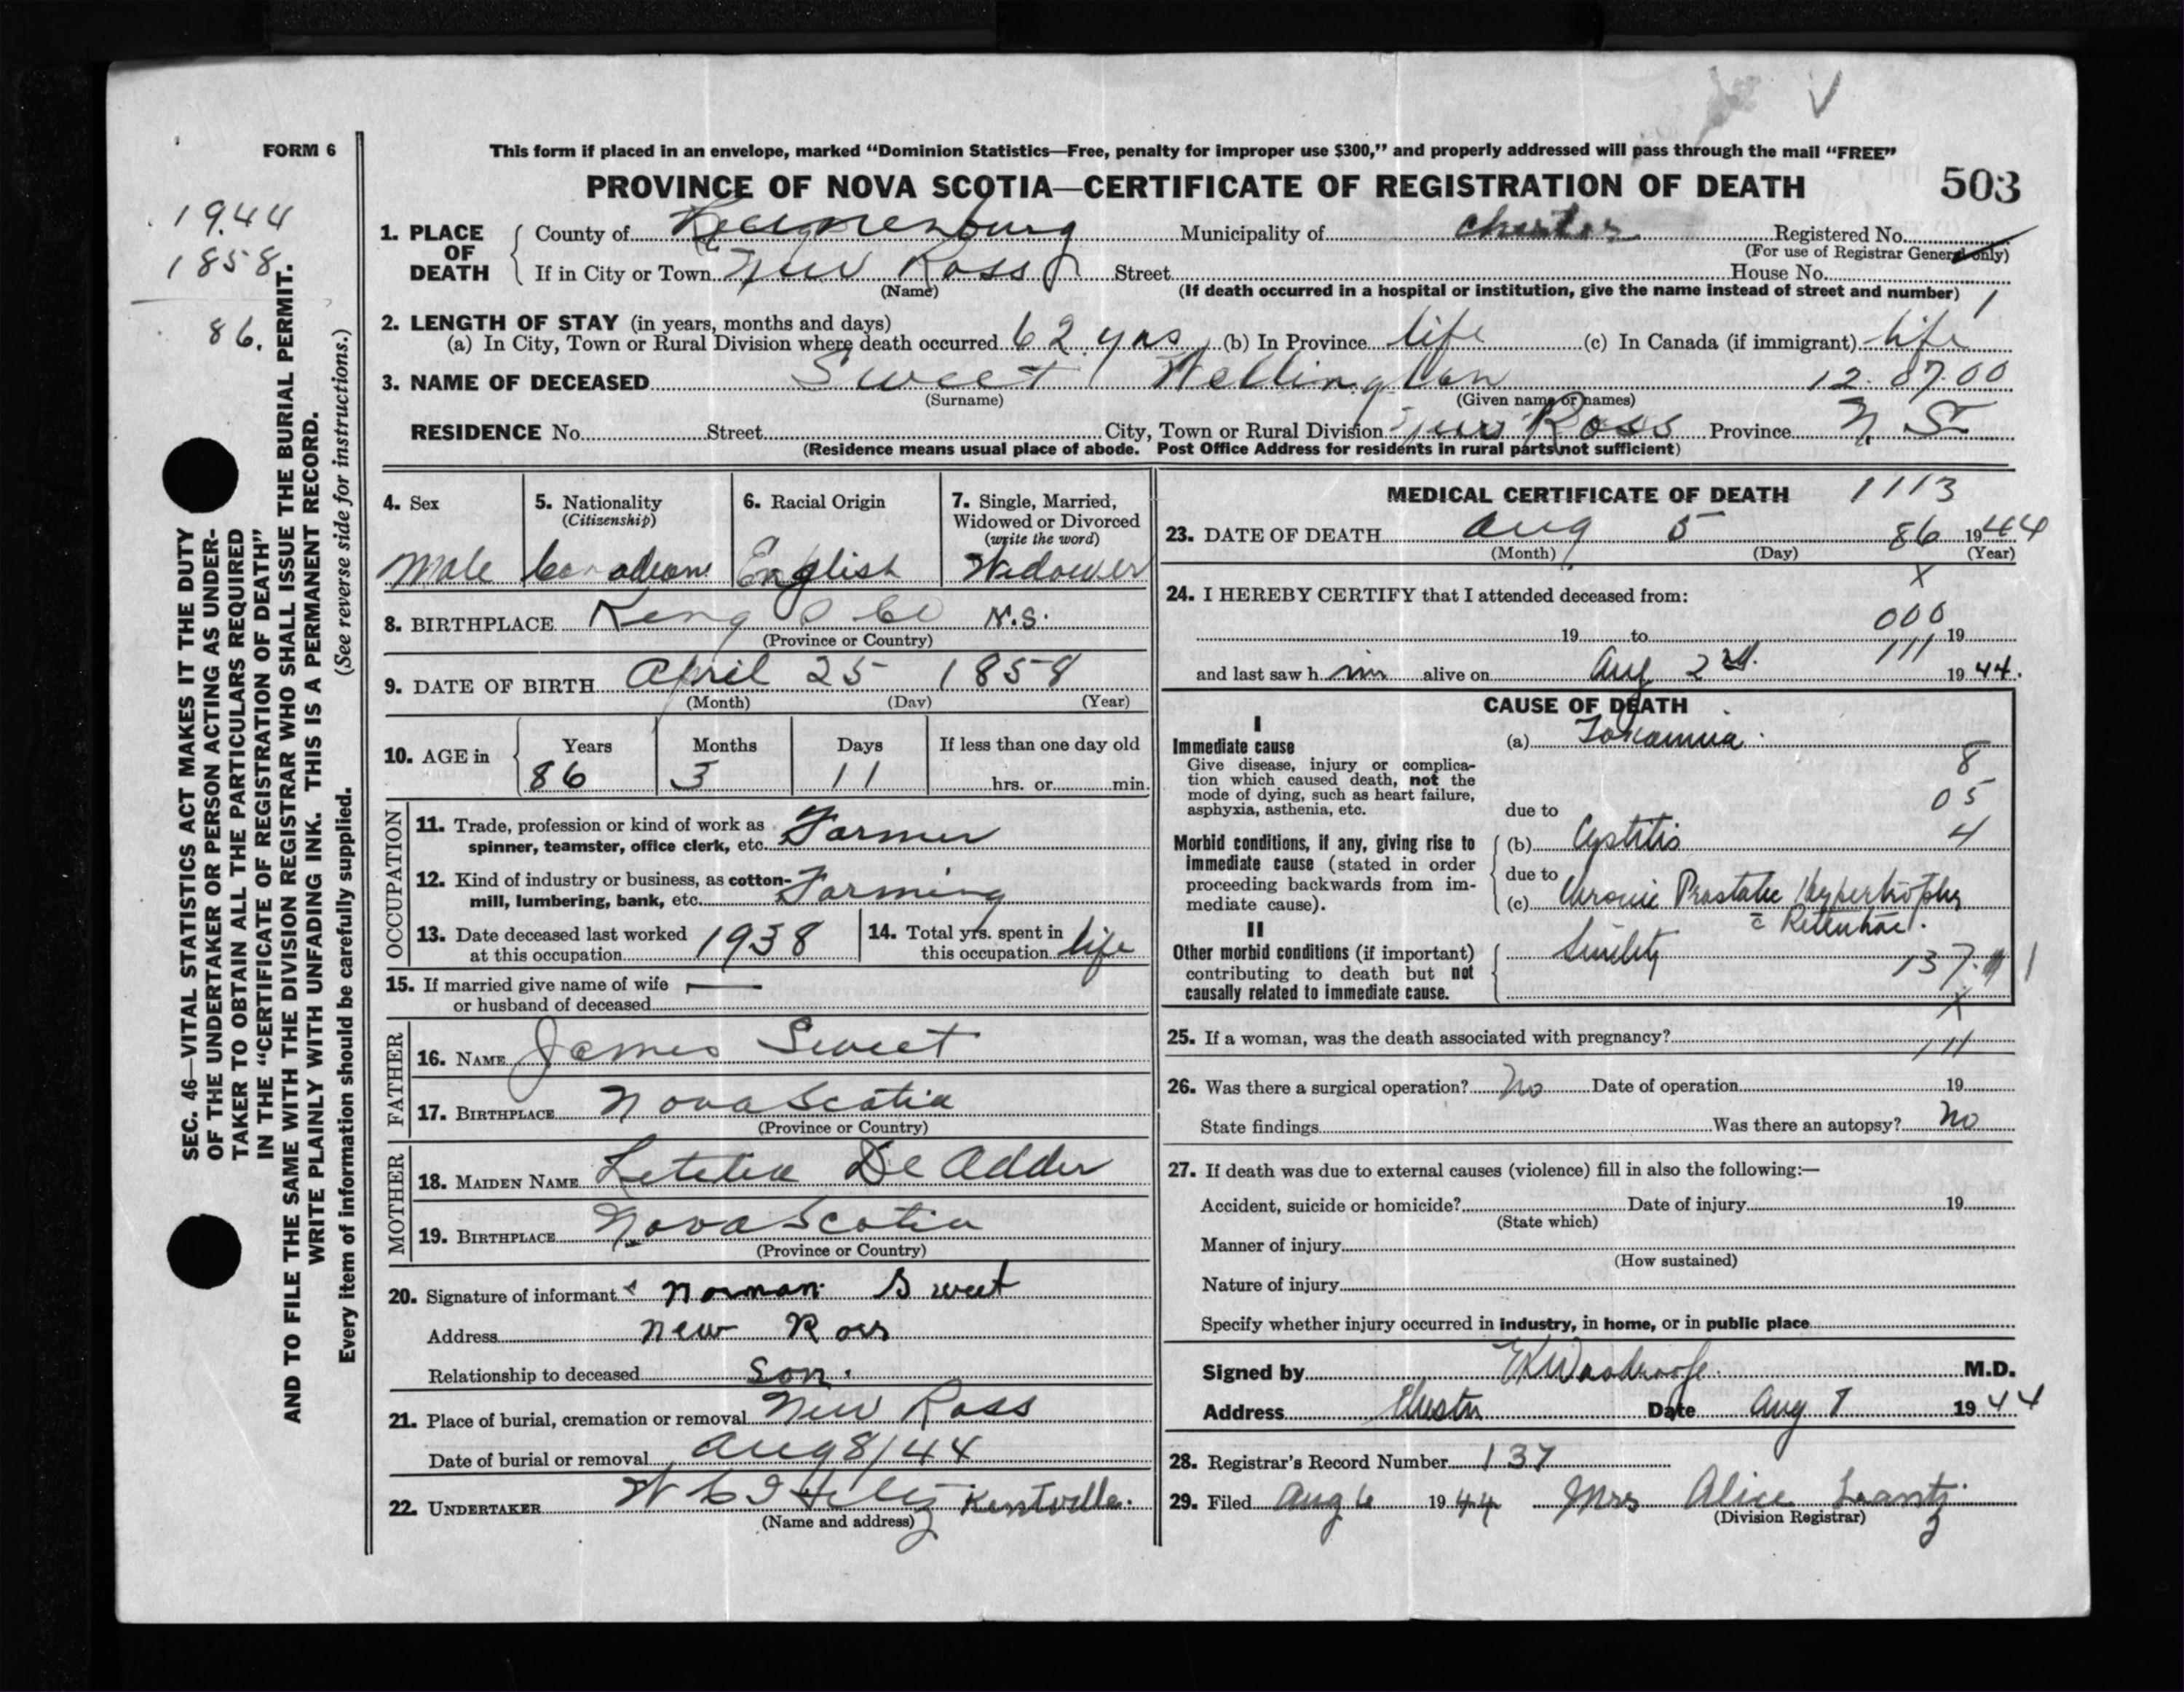 FORM 6
This form if placed in an envelope, marked "Dominion Statistics—Free, penalty for improper use $300," and properly addressed will pass through the mail "FREE"
PROVINCE OF NOVA SCOTIA—CERTIFICATE OF REGISTRATION OF DEATH 503
1944
1858
86.
1. PLACE OF DEATH County of Lunenburg Municipality of Chester Registered No.
(For use of Registrar General only)
If in City or Town New Ross Street House No.
(Name) (If death occurred in a hospital or institution, give the name instead of street and number) 1
2. LENGTH OF STAY (in years, months and days)
(a) In City, Town or Rural Division where death occurred 62 yrs (b) In Province life (c) In Canada (if immigrant) life
3. NAME OF DECEASED Sweet Wellington 12.07.00
(Surname) (Given name or names)
RESIDENCE No. Street City, Town or Rural Division New Ross Province N S
(Residence means usual place of abode. Post Office Address for residents in rural parts not sufficient)
SEC. 46—VITAL STATISTICS ACT MAKES IT THE DUTY
OF THE UNDERTAKER OR PERSON ACTING AS UNDER-
TAKER TO OBTAIN ALL THE PARTICULARS REQUIRED
IN THE "CERTIFICATE OF REGISTRATION OF DEATH"
AND TO FILE THE SAME WITH THE DIVISION REGISTRAR WHO SHALL ISSUE THE BURIAL PERMIT.
WRITE PLAINLY WITH UNFADING INK. THIS IS A PERMANENT RECORD.
Every item of information should be carefully supplied. (See reverse side for instructions.)
4. Sex
Male
5. Nationality
(Citizenship)
Canadian
6. Racial Origin
English
7. Single, Married,
Widowed or Divorced
(write the word)
Widower
8. BIRTHPLACE Kings Co N.S.
(Province or Country)
9. DATE OF BIRTH April 25 1858
(Month) (Day) (Year)
10. AGE in Years Months Days If less than one day old
86 3 11 hrs. or min.
OCCUPATION
11. Trade, profession or kind of work as
spinner, teamster, office clerk, etc. Farmer
12. Kind of industry or business, as cotton-
mill, lumbering, bank, etc. Farming
13. Date deceased last worked
at this occupation 1938
14. Total yrs. spent in
this occupation life
15. If married give name of wife —
or husband of deceased
FATHER
16. NAME James Sweet
17. BIRTHPLACE Nova Scotia
(Province or Country)
MOTHER
18. MAIDEN NAME Letelia De Adder
19. BIRTHPLACE Nova Scotia
(Province or Country)
20. Signature of informant Norman Sweet
Address New Ross
Relationship to deceased Son.
21. Place of burial, cremation or removal New Ross
Date of burial or removal Aug 8/44
22. UNDERTAKER Kentville.
(Name and address)
MEDICAL CERTIFICATE OF DEATH 1113
23. DATE OF DEATH Aug 5 86 1944
(Month) (Day) (Year)
X
24. I HEREBY CERTIFY that I attended deceased from:
000
19 to 19
111
and last saw him alive on Aug 2nd. 1944.
CAUSE OF DEATH
I
Immediate cause
Give disease, injury or complica-
tion which caused death, not the
mode of dying, such as heart failure,
asphyxia, asthenia, etc.
(a) Toxaemia.
8
05
due to
Morbid conditions, if any, giving rise to
immediate cause (stated in order
proceeding backwards from im-
mediate cause).
(b) Cystitis 4
due to
(c) Chronic Prostatic Hypertrophy
c̄ Retention.
II
Other morbid conditions (if important)
contributing to death but not
causally related to immediate cause.
Senility
137. 1
X
25. If a woman, was the death associated with pregnancy?
111
26. Was there a surgical operation? No Date of operation 19
State findings Was there an autopsy? No
27. If death was due to external causes (violence) fill in also the following:—
Accident, suicide or homicide? Date of injury 19
(State which)
Manner of injury
(How sustained)
Nature of injury
Specify whether injury occurred in industry, in home, or in public place
Signed by M.D.
Address Chester Date Aug 1944
28. Registrar's Record Number 137
29. Filed Aug 6 1944 Mrs Alice Lantz
(Division Registrar)